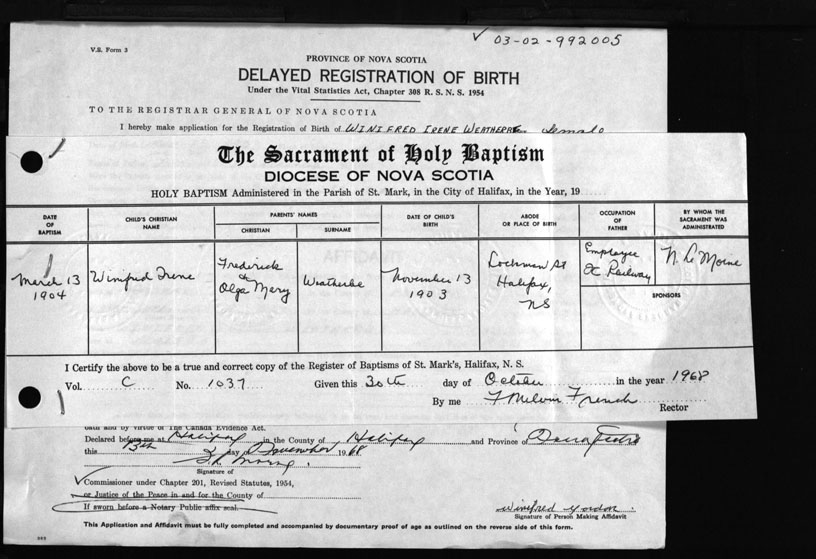 03-02-992005
V.S. Form 3
PROVINCE OF NOVA SCOTIA
DELAYED REGISTRATION OF BIRTH
Under the Vital Statistics Act, Chapter 308 R. S. N. S. 1954
TO THE REGISTRAR GENERAL OF NOVA SCOTIA
I hereby make application for the Registration of Birth of WINIFRED IRENE female
The Sacrament of Holy Baptism
DIOCESE OF NOVA SCOTIA
HOLY BAPTISM Administered in the Parish of St. Mark, in the City of Halifax, in the Year, 19
DATE OF BAPTISM
CHILD'S CHRISTIAN NAME
PARENTS' NAMES
CHRISTIAN
SURNAME
DATE OF CHILD'S BIRTH
ABODE OR PLACE OF BIRTH
OCCUPATION OF FATHER
BY WHOM THE SACRAMENT WAS ADMINISTERED
March 13
1904
Winifred Irene
Frederick
&
Olga Mary
Weatherbe
November 13
1903
Lockman St
Halifax,
NS
Employee
Railway
N. Le Moine
SPONSORS
I Certify the above to be a true and correct copy of the Register of Baptisms of St. Mark's, Halifax, N. S.
Vol. C No. 1037 Given this 30th day of October in the year 1968
By me F Melvin French Rector
oath and by virtue of The Canada Evidence Act.
Declared before me at Halifax in the County of Halifax and Province of Nova Scotia
this 13th day 1968
Signature of
Commissioner under Chapter 201, Revised Statutes, 1954,
or Justice of the Peace in and for the County of
If sworn before a Notary Public affix seal.
Winifred Gordon
Signature of Person Making Affidavit
This Application and Affidavit must be fully completed and accompanied by documentary proof of age as outlined on the reverse side of this form.